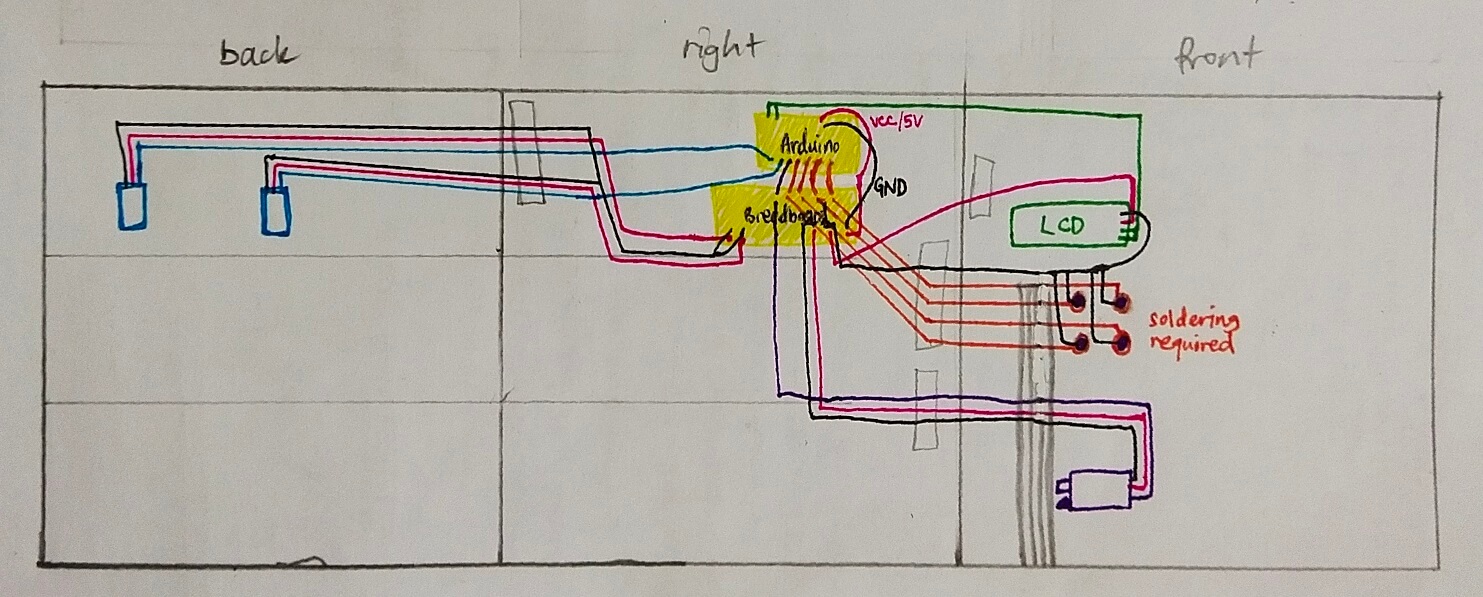 back
right
front
VCC/5V
Arduino
GND
Breadboard
LCD
soldering
required